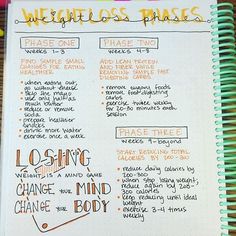 WEIGHTLOSS PHASES
PHASE ONE
WEEKS 1-3
FIND SIMPLE SMALL
CHANGES FOR EATING
HEALTHIER.
• when eating out,
go without cheese
• skip the mayo
• use only half as
much butter
• reduce or remove
soda
• prepare healthier
snacks
• drink more water
• exercise once a week
PHASE TWO
WEEKS 4-8
ADD LEAN PROTEIN
AND FIBER WHILE
REMOVING SIMPLE FAST
DIGESTING CARBS
• remove sugary foods
• remove fast-digesting
carbs
• exercise twice weekly
by 20-30 minutes each
session
PHASE THREE
WEEKS 9-beyond
START REDUCING TOTAL
CALORIES BY 200-300
• reduce daily calories by
200-300
• when stop losing weight,
reduce again by 200-
300 calories
• keep reducing until ideal
weight
• exercise 3-4 times
weekly
LOSING
WEIGHT IS A MIND GAME
CHANGE YOUR MIND
CHANGE YOUR BODY